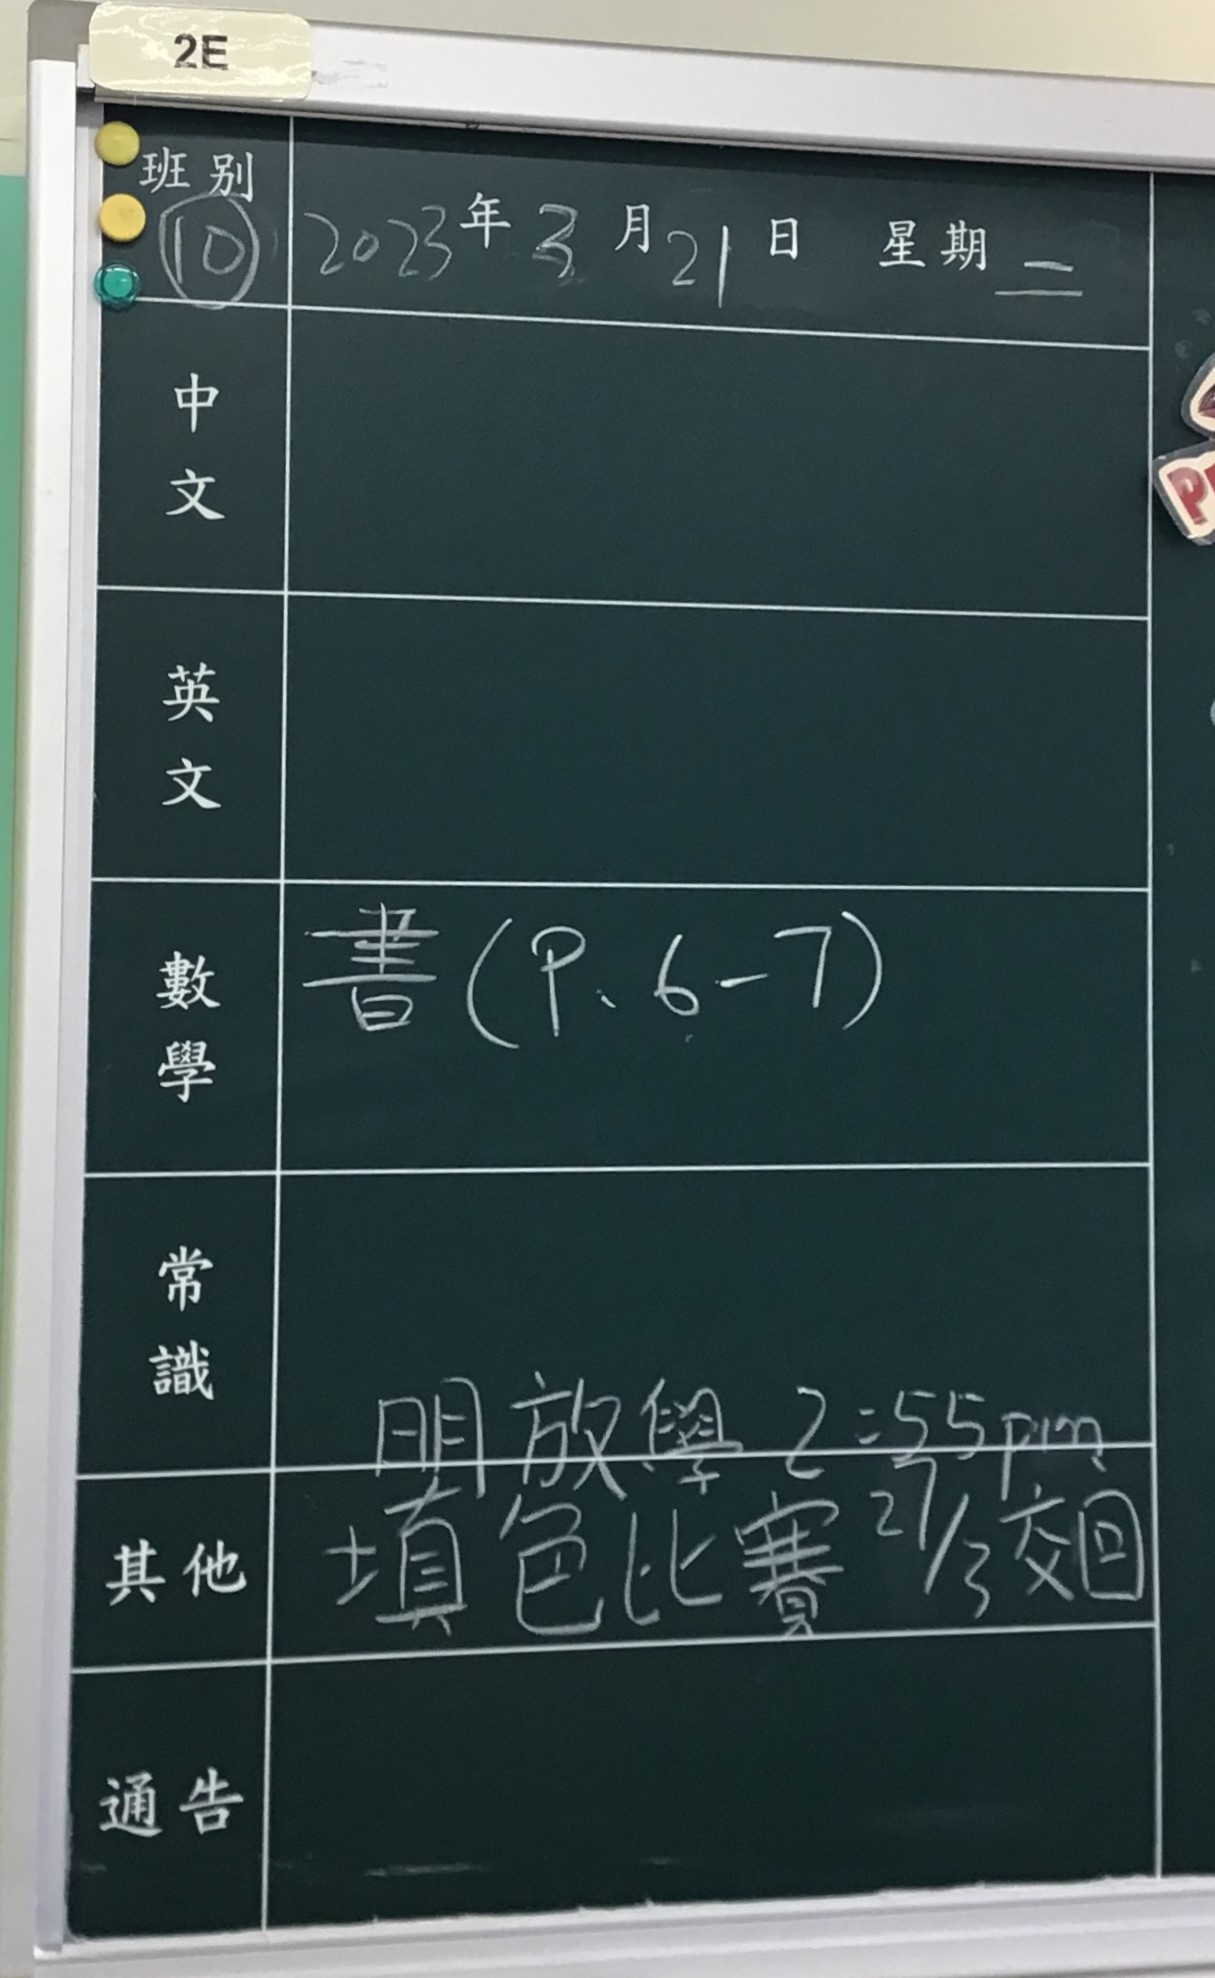 2E
班別
⑩ 2023年3月21日 星期二
中文
英文
數學 書(P.6-7)
常識
明放學 2:55pm
其他 填色比賽 27/3交回
通告